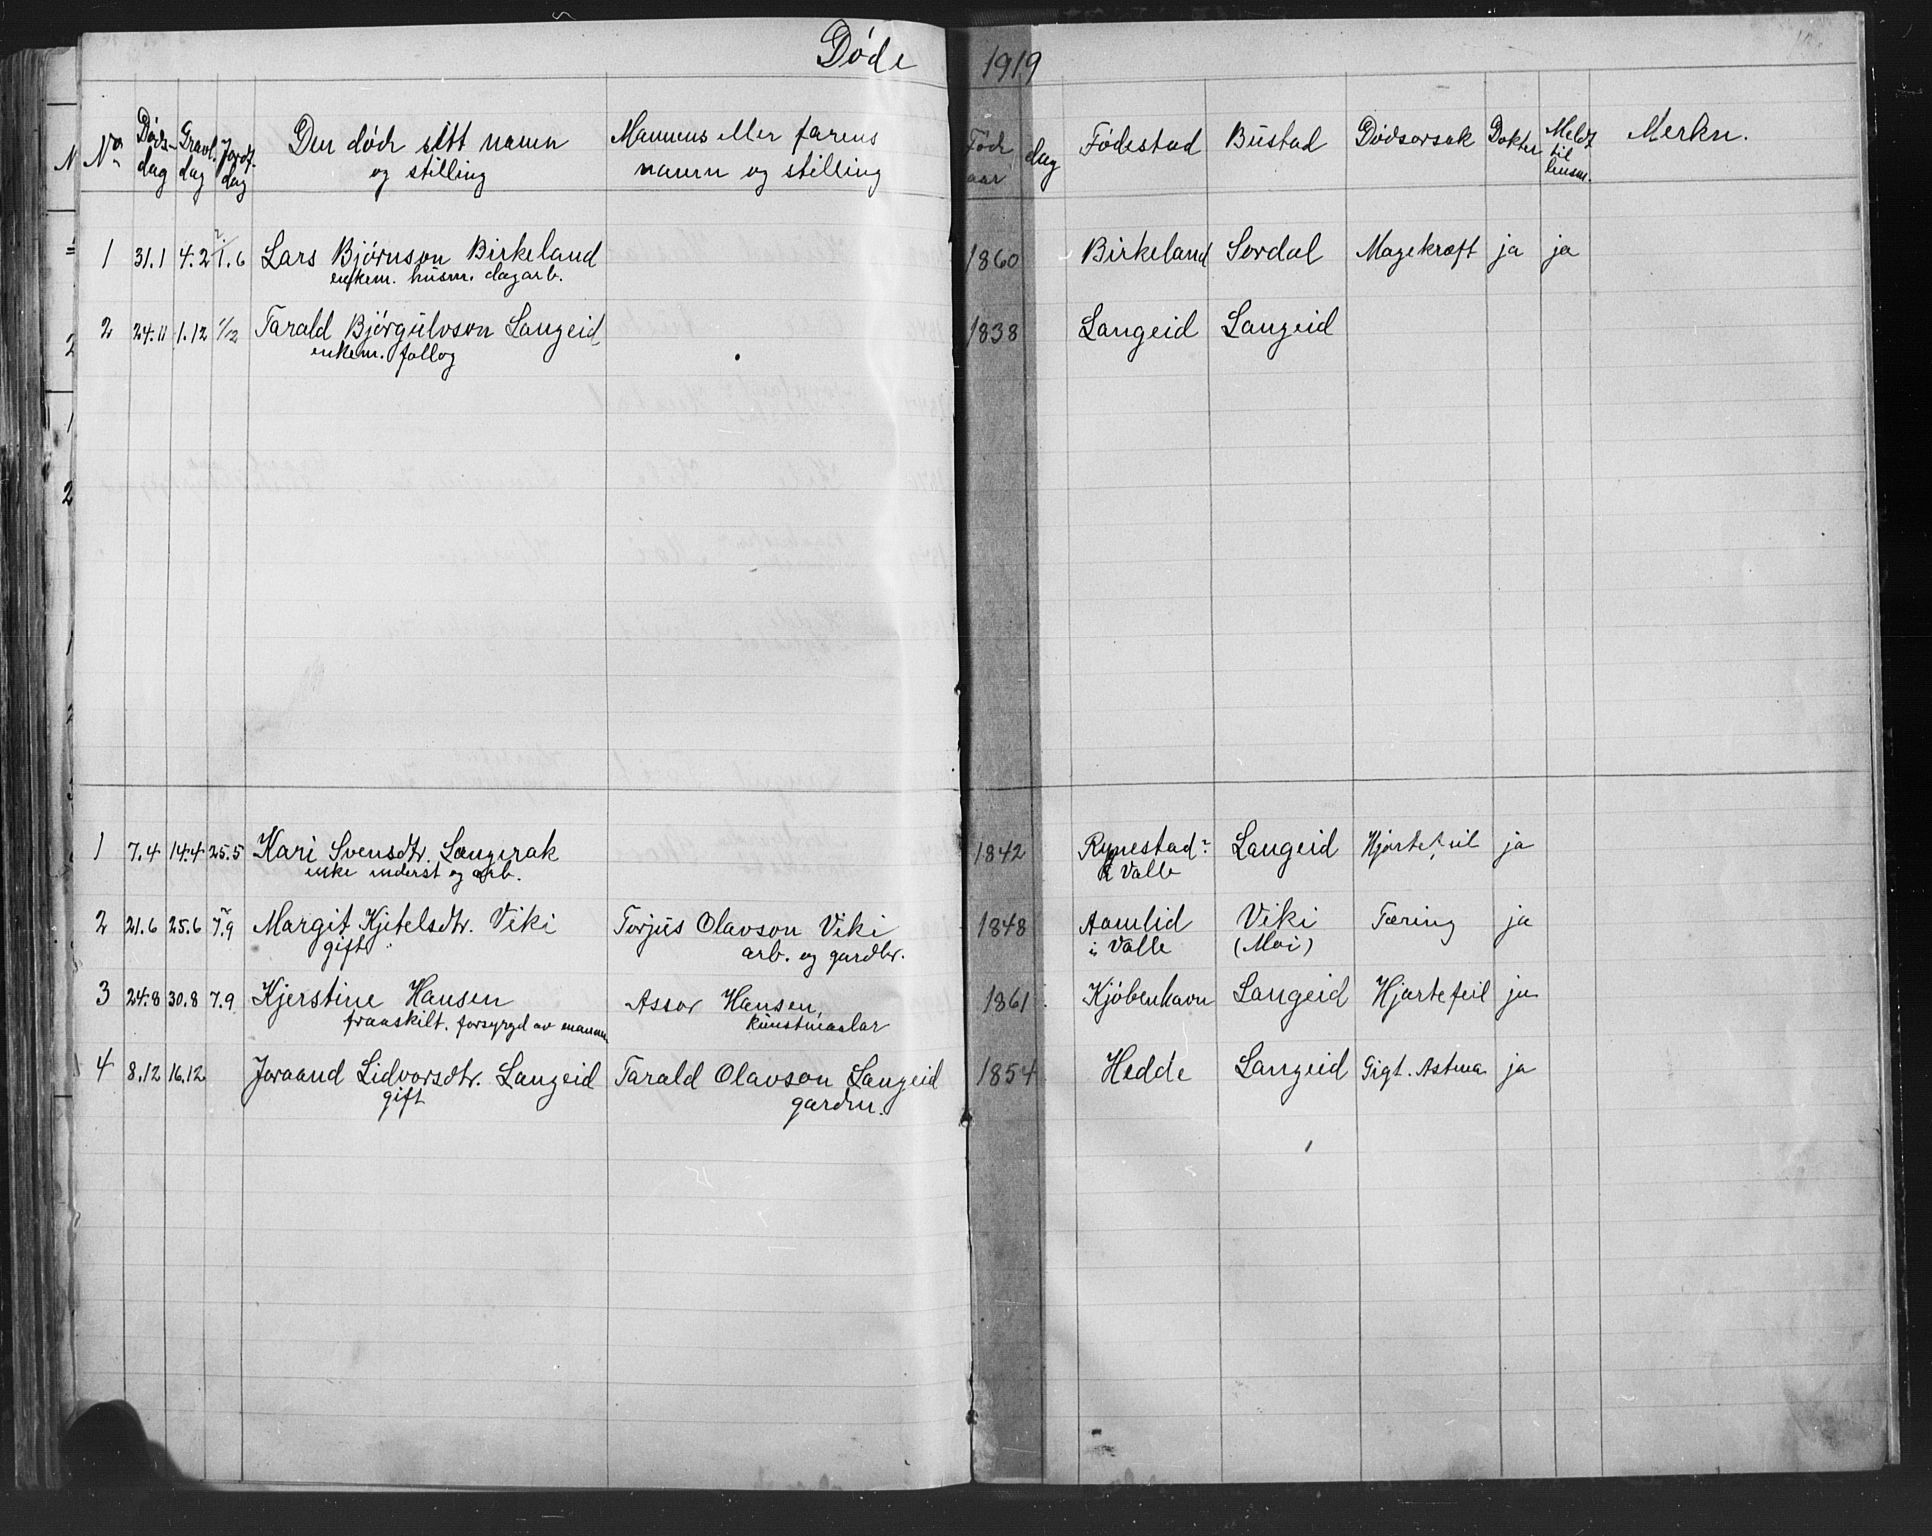 Døde 1919
No Døds-dag Gravl. dag Jordf. dag Den døde sitt namn og stilling Mannens eller farens namn og stilling Føds aar dag Fødestad Bustad Dødsorsak Dokter Meldt til lensm. Merkn.
1 31.1 4.2 1.6 Lars Bjørnson Birkeland 1860 Birkeland Sordal Magekræft ja ja
enkem. husm. dagarb.
2 24.11 1.12 1/12 Tarald Bjørgulvson Langeid 1838 Langeid Langeid
enkem. follog
1 7.4 14.4 25.5 Kari Svensdtr. Langerak 1842 Rynestad? Langeid Hjartefeil ja
enke inderst og arb. i Valle
2 21.6 25.6 7.9 Margit Kjitelsdtr. Viki Torjus Olavson Viki 1848 Aamlid Viki Tæring ja
gift arb. og gardbr. i Valle (Moi)
3 24.8 30.8 7.9 Kjerstine Hansen Assor Hansen, 1861 Kjøbenhavn Langeid Hjartefeil ja
fraaskilt. forsyrgd av mannen kunstmaalar
4 8.12 16.12 Joraand Lidvorsdtr. Langeid Tarald Olavson Langeid 1854 Hedde Langeid Gigt. Astma ja
gift gardm.